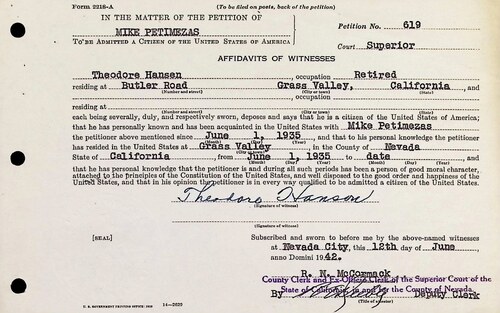 Form 2218-A (To be filed on posts, back of the petition)
IN THE MATTER OF THE PETITION OF Petition No. 619
MIKE PETIMEZAS
TO BE ADMITTED A CITIZEN OF THE UNITED STATES OF AMERICA Court Superior
AFFIDAVITS OF WITNESSES
Theodore Hansen, occupation Retired
residing at Butler Road Grass Valley, California, and
(Number and street) (City or town) (State)
, occupation
residing at
(Number and street) (City or town) (State)
each being severally, duly, and respectively sworn, deposes and says that he is a citizen of the United States of America;
that he has personally known and has been acquainted in the United States with Mike Petimezas
the petitioner above mentioned since June 1, 1935, and that to his personal knowledge the petitioner
(Month) (Day) (Year)
has resided in the United States at Grass Valley, in the County of Nevada
(City or town)
State of California, from June 1, 1935 to date, and
(Month) (Day) (Year)
that he has personal knowledge that the petitioner is and during all such periods has been a person of good moral character,
attached to the principles of the Constitution of the United States, and well disposed to the good order and happiness of the
United States, and that in his opinion the petitioner is in every way qualified to be admitted a citizen of the United States.
Theodore Hansen
(Signature of witness)
(Signature of witness)
Subscribed and sworn to before me by the above-named witnesses
[SEAL] at Nevada City, this 12th day of June,
anno Domini 1942.
R. N. McCormack
County Clerk and Ex-Officio Clerk of the Superior Court of the
State of California, in and for the County of Nevada.
By Deputy Clerk
(Title of officer)
U. S. GOVERNMENT PRINTING OFFICE 14—2623